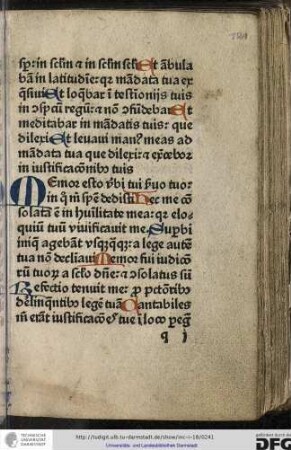 sp̄: in sclm̄ ⁊ in sclm̄ scl̄i Et ābula
bā in latitudīe: qꝛ mādata tua ex
q̄siui Et loq̄bar ī testīonijs tuis
in ꝯspcū regū: ⁊ nō ꝯfūdebar Et
meditabar in mādatis tuis: que
dilexi Et leuaui man⁹ meas ad
mādata tua que dilexi: ⁊ exercebor
in iustificacōnibꝰ tuis
Memor esto v̄bi tui s̄uo tuo:
in q̄ m̄ spem dedisti Hec me cō
solata ē in hūilitate mea: qꝛ elo-
quiū tuū viuificauit me Supbi
iniq̄ agebāt vsqꝫq̄qꝫ: a lege autē
tua nō decliaui Memor fui iudicō
rū tuoꝝ a sclo dn̄e: ⁊ ꝯsolatus sū
Defectio tenuit me: ꝓ pctōribꝰ
delinq̄ntibꝰ legē tuā Cantabiles
m̄ erāt iustificacōēs tue ī loco peḡ
q j
http://tudigit.ulb.tu-darmstadt.de/show/inc-i-18/0241
Universitäts- und Landesbibliothek Darmstadt
TECHNISCHE
UNIVERSITÄT
DARMSTADT
DFG